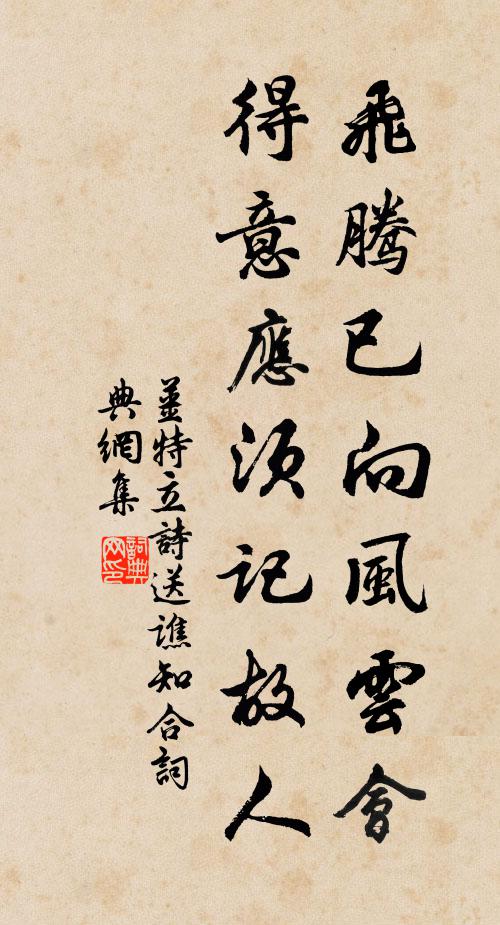 飛騰已向風雲會
得意應須記故人
薑特立詩送譙知合詞
典網集
詞典
网印